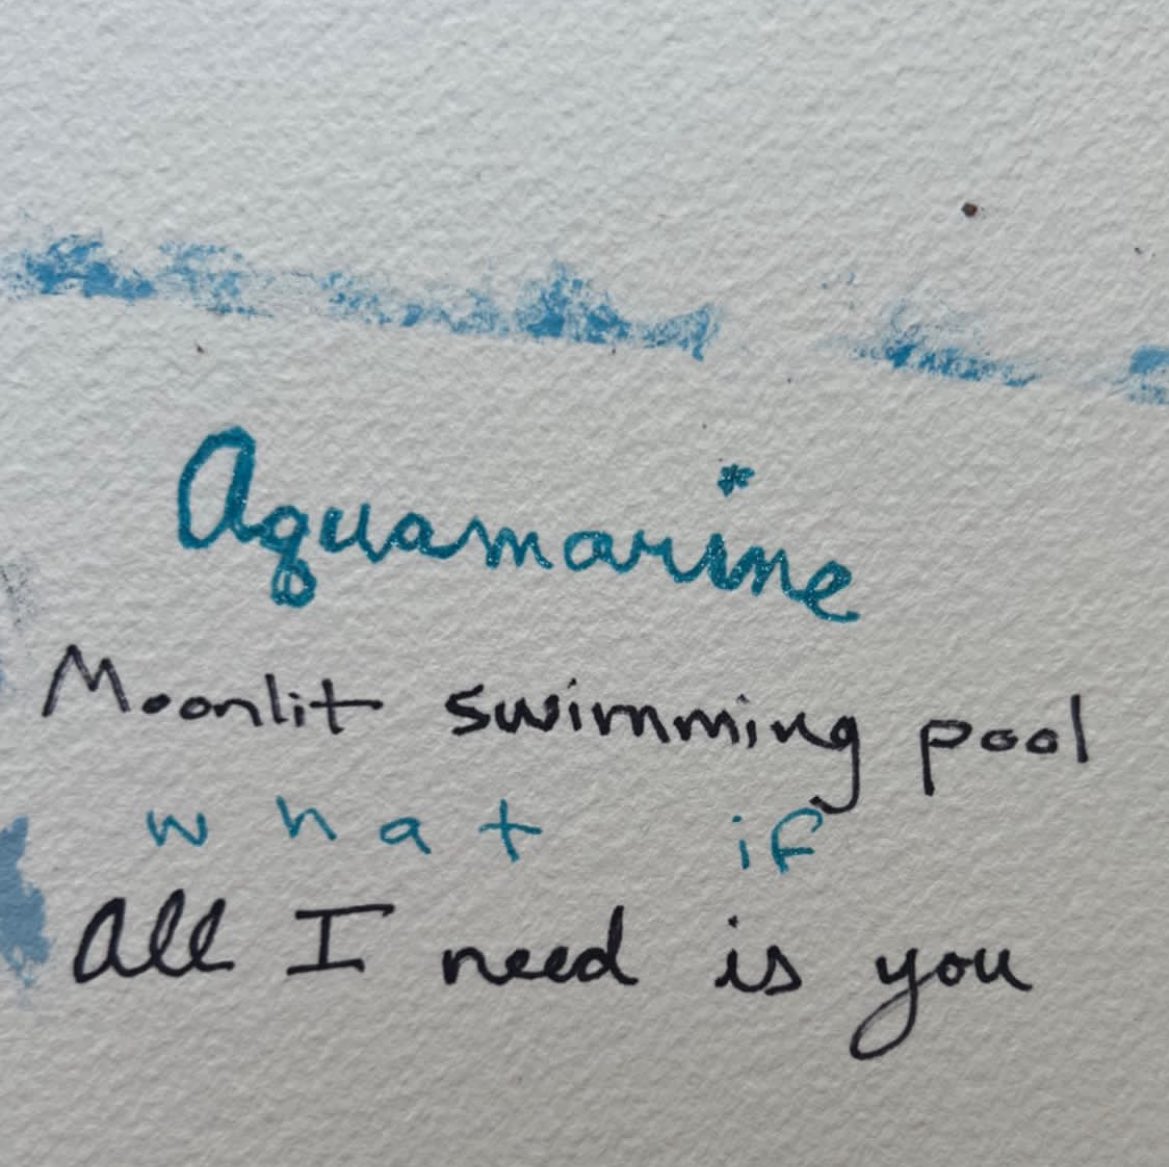 Aquamarine
Moonlit swimming pool
what if
All I need is you